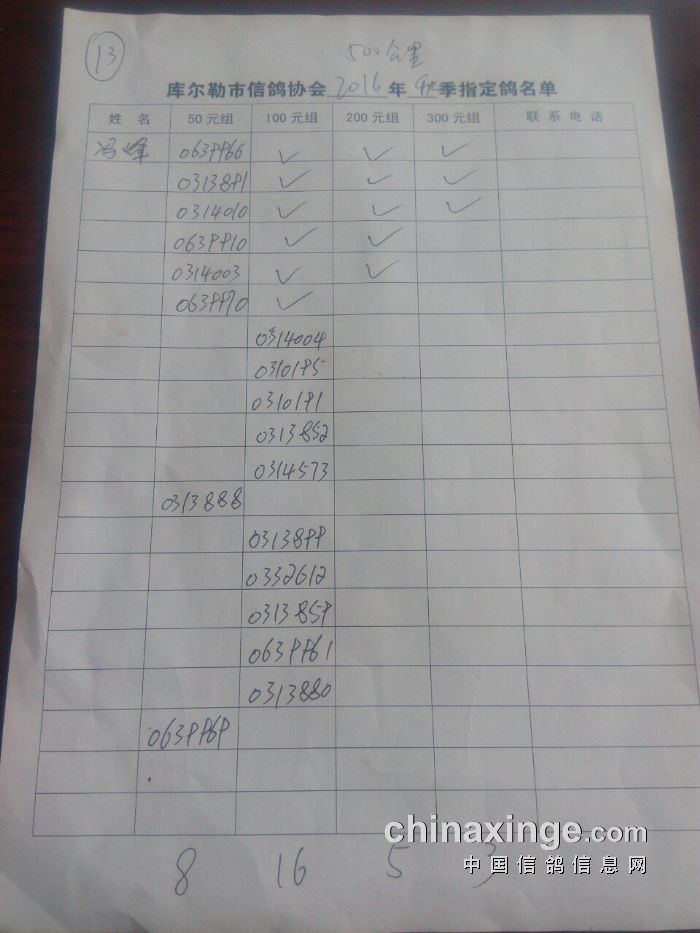 13
500公里
库尔勒市信鸽协会2016年秋季指定鸽名单
姓 名 50元组 100元组 200元组 300元组 联系电话
冯峰 0639966 ✓ ✓ ✓
0313891 ✓ ✓ ✓
0314010 ✓ ✓ ✓
0639910 ✓ ✓
0314003 ✓ ✓
0639970 ✓
0314004
0310195
0310191
0313852
0314573
0313888
0313899
0332612
0313859
0639961
0313880
0639969
8 16 5 3
chinaxinge.com
中国信鸽信息网